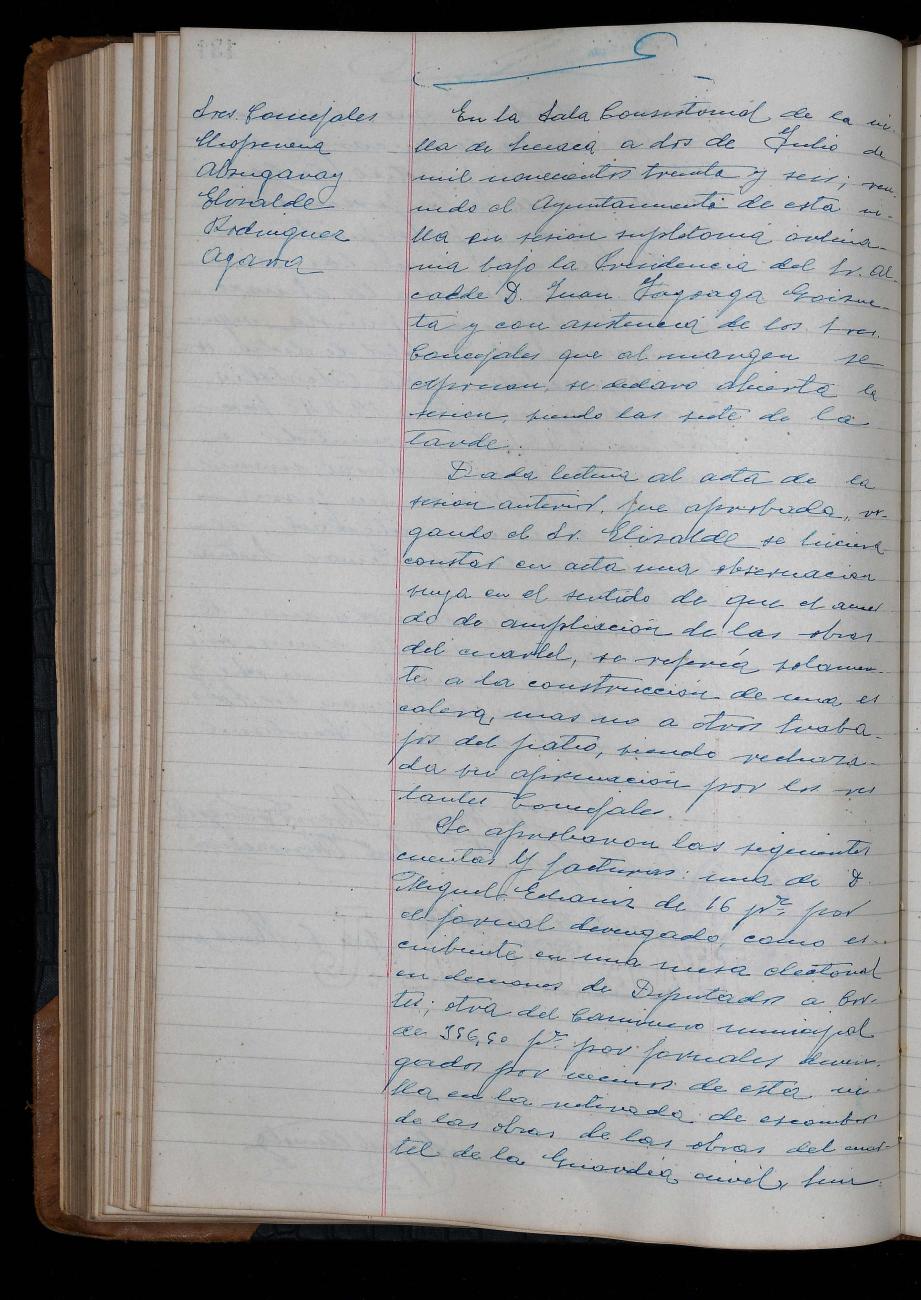 Sres. Concejales
Abrugaray
Elizalde
Rodriguez
Agarra
En la Sala Consistorial de la vi-
lla de a dos de Julio de
mil novecientos treinta y seis; reu-
nido el Ayuntamiento de esta vi-
lla en sesion supletoria ordina-
ria bajo la Presidencia del Sr. Al-
calde D. Juan Goizue-
ta y con asistencia de los Sres.
Concejales que al margen se
expresan, se declaro abierta la
sesion, siendo las siete de la
tarde.
Dada lectura al acta de la
sesion anterior, fue aprobada, ro-
gando el Sr. Elizalde se hiciera
constar en acta una observacion
suya en el sentido de que el acuer
do de ampliación de las obras
del cuartel, se referia solamen-
te a la construcción de una es
calera, mas no a otros traba-
jos del patio, siendo rechaza-
da su afirmación por los res
tantes Concejales.
Se aprobaron las siguientes
cuentas y facturas: una de D.
Miguel Echaniz de 16 pts. por
el jornal devengado, como es-
cribiente en una mesa electoral
en elecciones de Diputados a Cor-
tes; otra del Caminero municipal
de pts. por jornales deven-
gados por vecinos de esta vi-
lla en la retirada de escombros
de las obras de las obras del cuar-
tel de la Guardia civil,